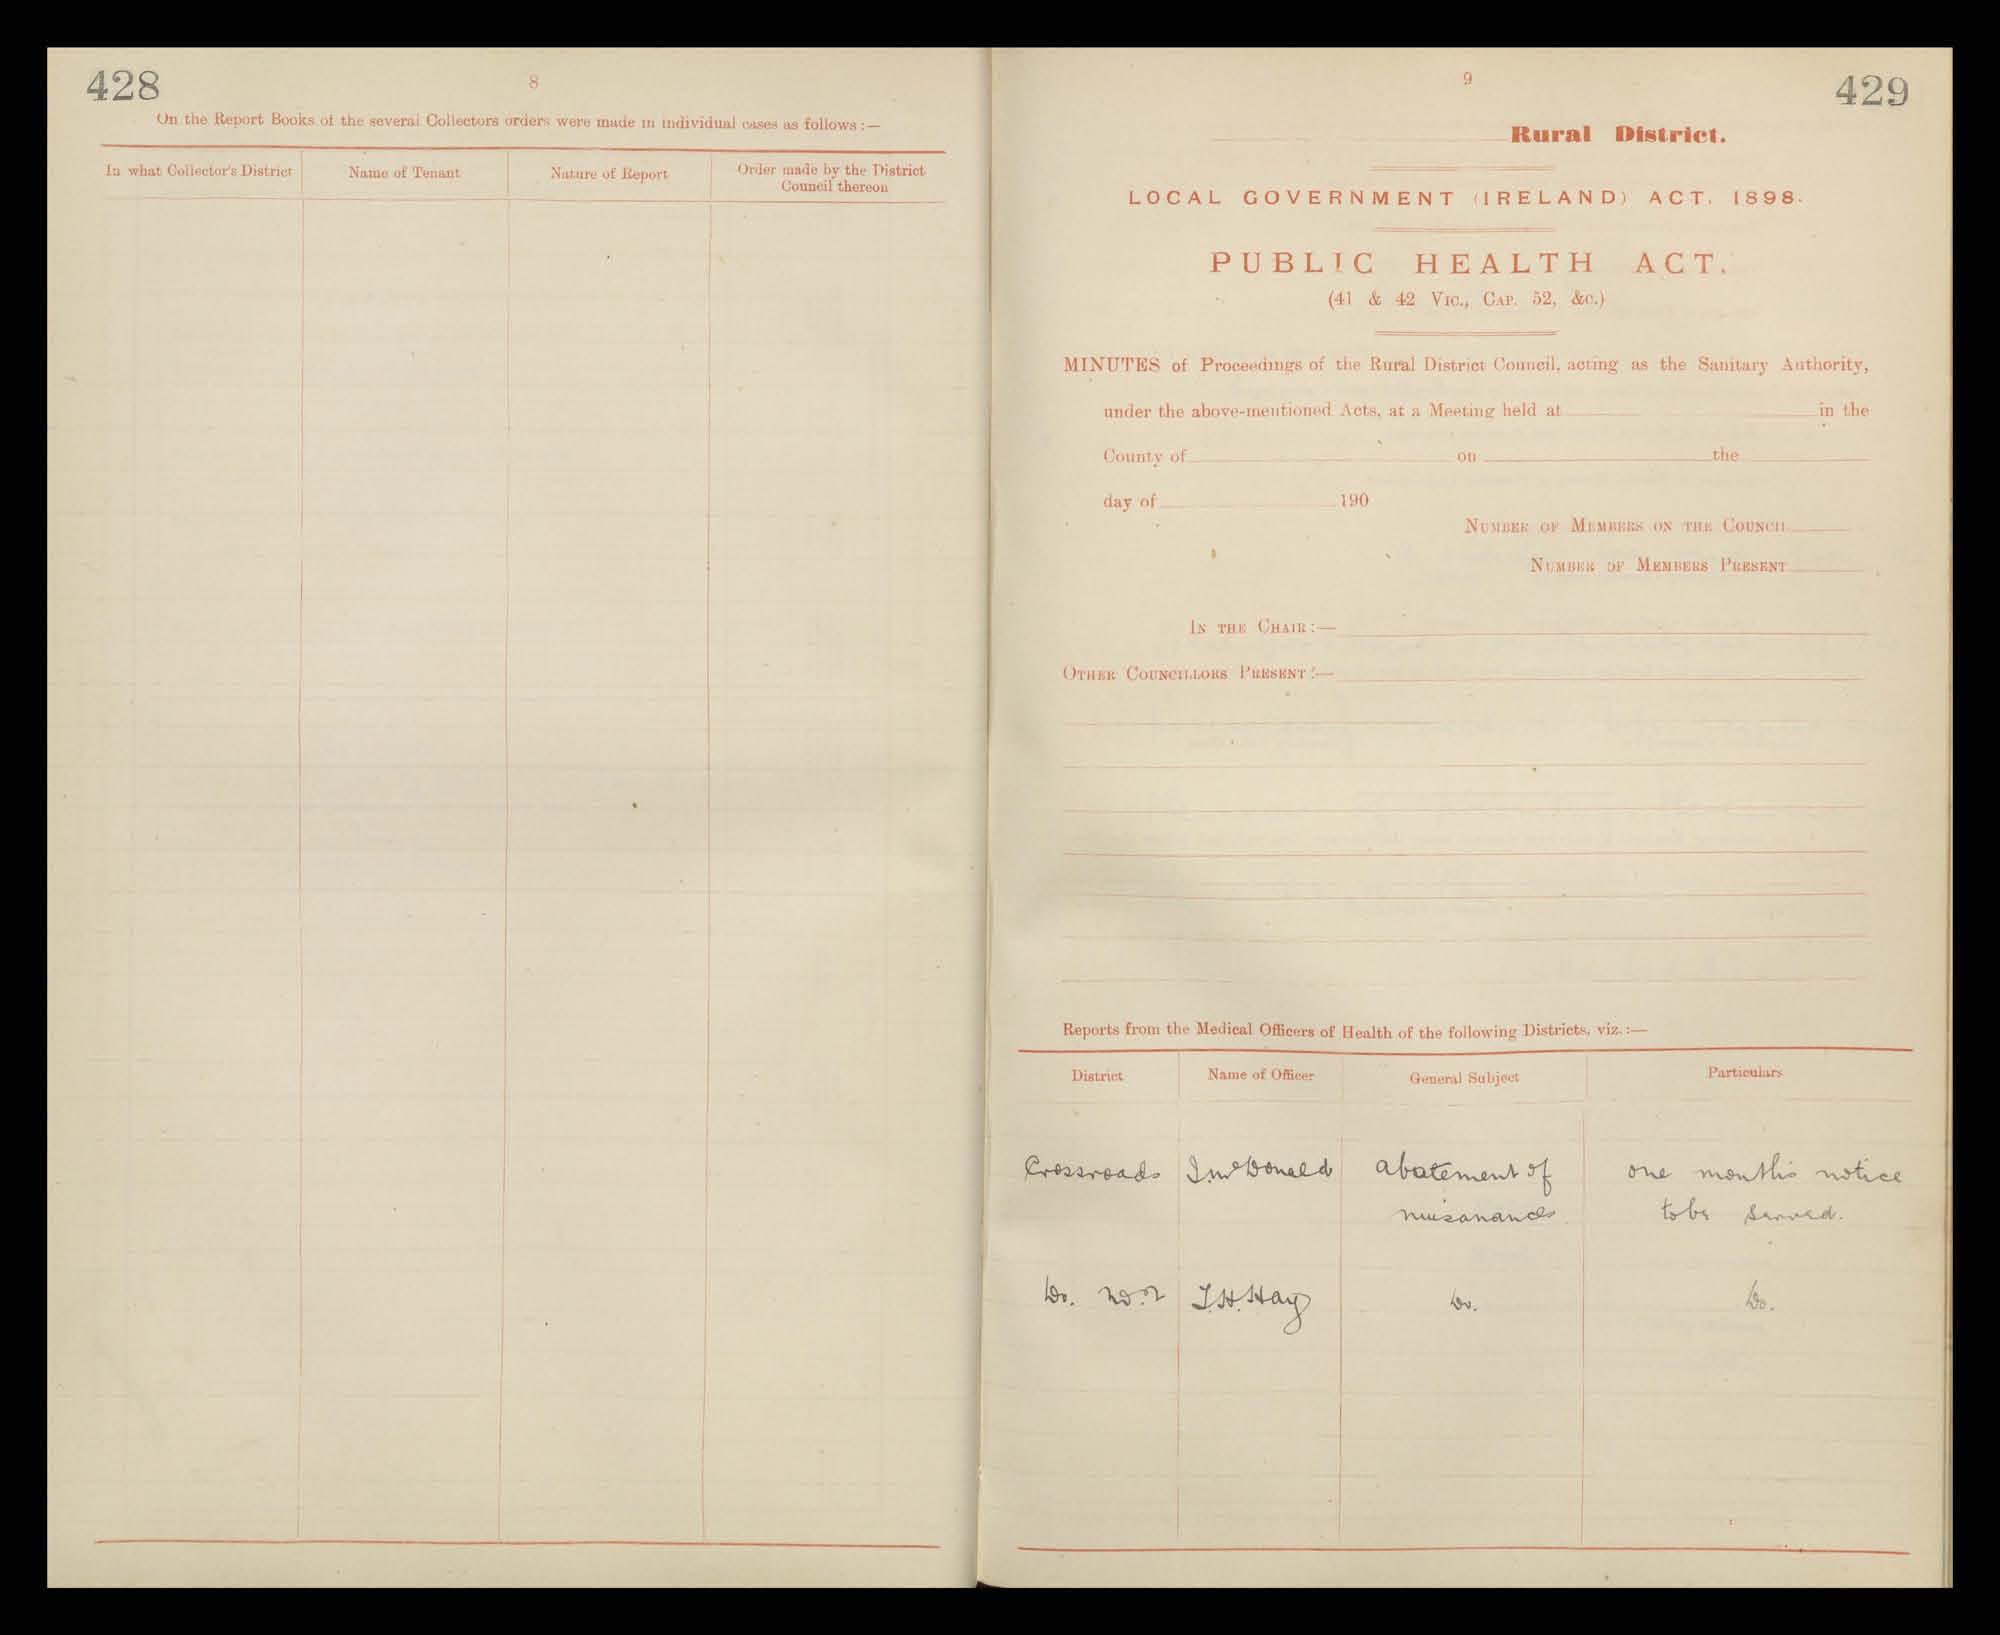 428
8
On the Report Books of the several Collectors orders were made in individual cases as follows :—
In what Collector's District
Name of Tenant
Nature of Report
Order made by the District
Council thereon
9
429
Rural District.
LOCAL GOVERNMENT (IRELAND) ACT, 1898.
PUBLIC HEALTH ACT.
(41 & 42 Vic., Cap. 52, &c.)
MINUTES of Proceedings of the Rural District Council, acting as the Sanitary Authority,
under the above-mentioned Acts, at a Meeting held at in the
County of on the
day of 190
Number of Members on the Council
Number of Members Present
In the Chair :—
Other Councillors Present :—
Reports from the Medical Officers of Health of the following Districts, viz. :—
District Name of Officer General Subject Particulars
Crossroads J. McDonald abatement of one months notice
nuisances to be served.
Do. No. 2 J. H. Hay Do. Do.